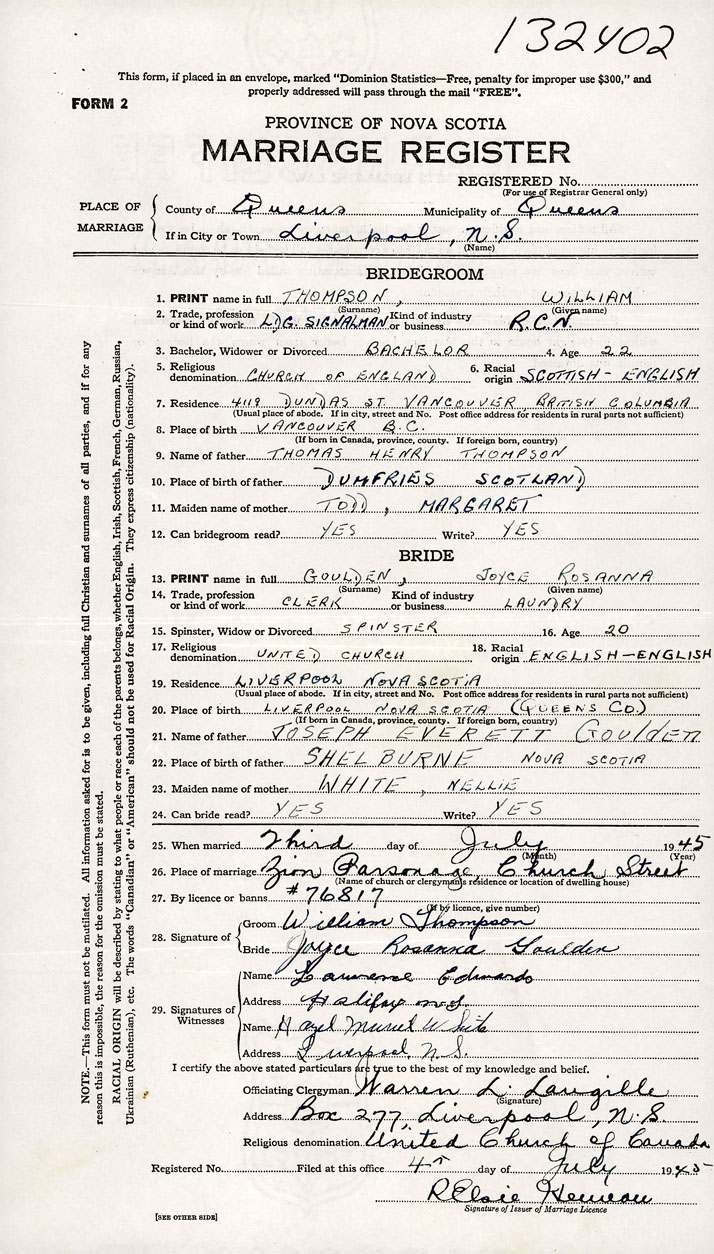 132402
This form, if placed in an envelope, marked "Dominion Statistics—Free, penalty for improper use $300," and
properly addressed will pass through the mail "FREE".
FORM 2
PROVINCE OF NOVA SCOTIA
MARRIAGE REGISTER
REGISTERED No.
(For use of Registrar General only)
PLACE OF MARRIAGE
County of Queens Municipality of Queens
If in City or Town Liverpool, N.S.
(Name)
BRIDEGROOM
1. PRINT name in full THOMPSON, WILLIAM
(Surname) (Given name)
2. Trade, profession or kind of work LDG. SIGNALMAN Kind of industry or business R.C.N.
3. Bachelor, Widower or Divorced BACHELOR 4. Age 22
5. Religious denomination CHURCH OF ENGLAND 6. Racial origin SCOTTISH - ENGLISH
7. Residence 4118 DUNDAS ST. VANCOUVER, BRITISH COLUMBIA
(Usual place of abode. If in city, street and No. Post office address for residents in rural parts not sufficient)
8. Place of birth VANCOUVER B.C.
(If born in Canada, province, county. If foreign born, country)
9. Name of father THOMAS HENRY THOMPSON
10. Place of birth of father DUMFRIES SCOTLAND
11. Maiden name of mother TODD, MARGARET
12. Can bridegroom read? YES Write? YES
BRIDE
13. PRINT name in full GOULDEN, JOYCE ROSANNA
(Surname) (Given name)
14. Trade, profession or kind of work CLERK Kind of industry or business LAUNDRY
15. Spinster, Widow or Divorced SPINSTER 16. Age 20
17. Religious denomination UNITED CHURCH 18. Racial origin ENGLISH—ENGLISH
19. Residence LIVERPOOL NOVA SCOTIA
(Usual place of abode. If in city, street and No. Post office address for residents in rural parts not sufficient)
20. Place of birth LIVERPOOL NOVA SCOTIA (QUEENS CO.)
(If born in Canada, province, county. If foreign born, country)
21. Name of father JOSEPH EVERETT GOULDEN
22. Place of birth of father SHELBURNE NOVA SCOTIA
23. Maiden name of mother WHITE, NELLIE
24. Can bride read? YES Write? YES
25. When married Third day of July 1945
(Month) (Year)
26. Place of marriage Zion Parsonage, Church Street
(Name of church or clergyman's residence or location of dwelling house)
27. By licence or banns #76817
(If by licence, give number)
28. Signature of
Groom William Thompson
Bride Joyce Rosanna Goulden
29. Signatures of Witnesses
Name Lawrence Edwards
Address Halifax N.S.
Name Hazel Muriel White
Address Liverpool N.S.
I certify the above stated particulars are true to the best of my knowledge and belief.
Officiating Clergyman Warren L. Langille
(Signature)
Address Box 277, Liverpool, N.S.
Religious denomination United Church of Canada
Registered No. Filed at this office 4th day of July 1945
R Elsie
Signature of Issuer of Marriage Licence
[SEE OTHER SIDE]
NOTE.—This form must not be mutilated. All information asked for is to be given, including full Christian and surnames of all parties, and if for any
reason this is impossible, the reason for the omission must be stated.
RACIAL ORIGIN will be described by stating to what people or race each of the parents belongs, whether English, Irish, Scottish, French, German, Russian,
Ukrainian (Ruthenian), etc. The words "Canadian" or "American" should not be used for Racial Origin. They express citizenship (nationality).